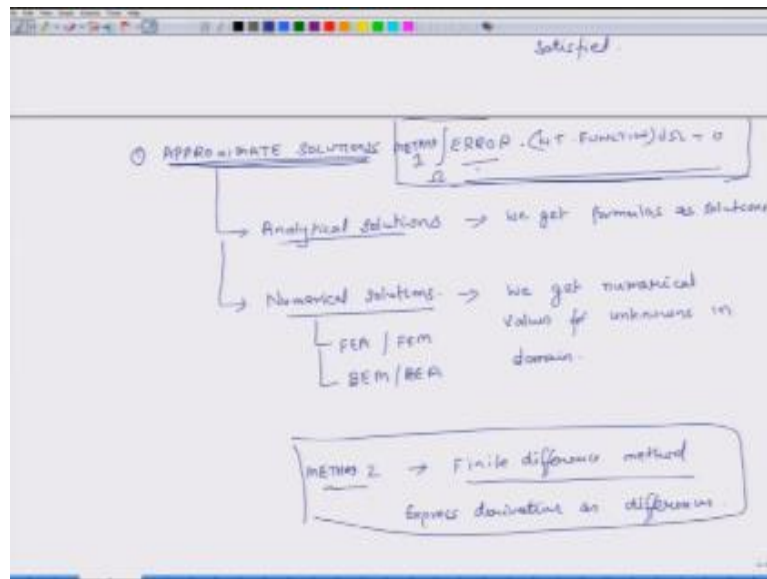 satisfied.
① APPROXIMATE SOLUTIONS METHOD 1 ∫Ω ERROR · (WT. FUNCTION) dΩ = 0
→ Analytical solutions → we get formulas as solutions
→ Numerical solutions. → we get numerical
values for unknowns in
domain.
FEA / FEM
BEM / BEA
METHOD 2 → Finite difference method
Express derivative as differences.